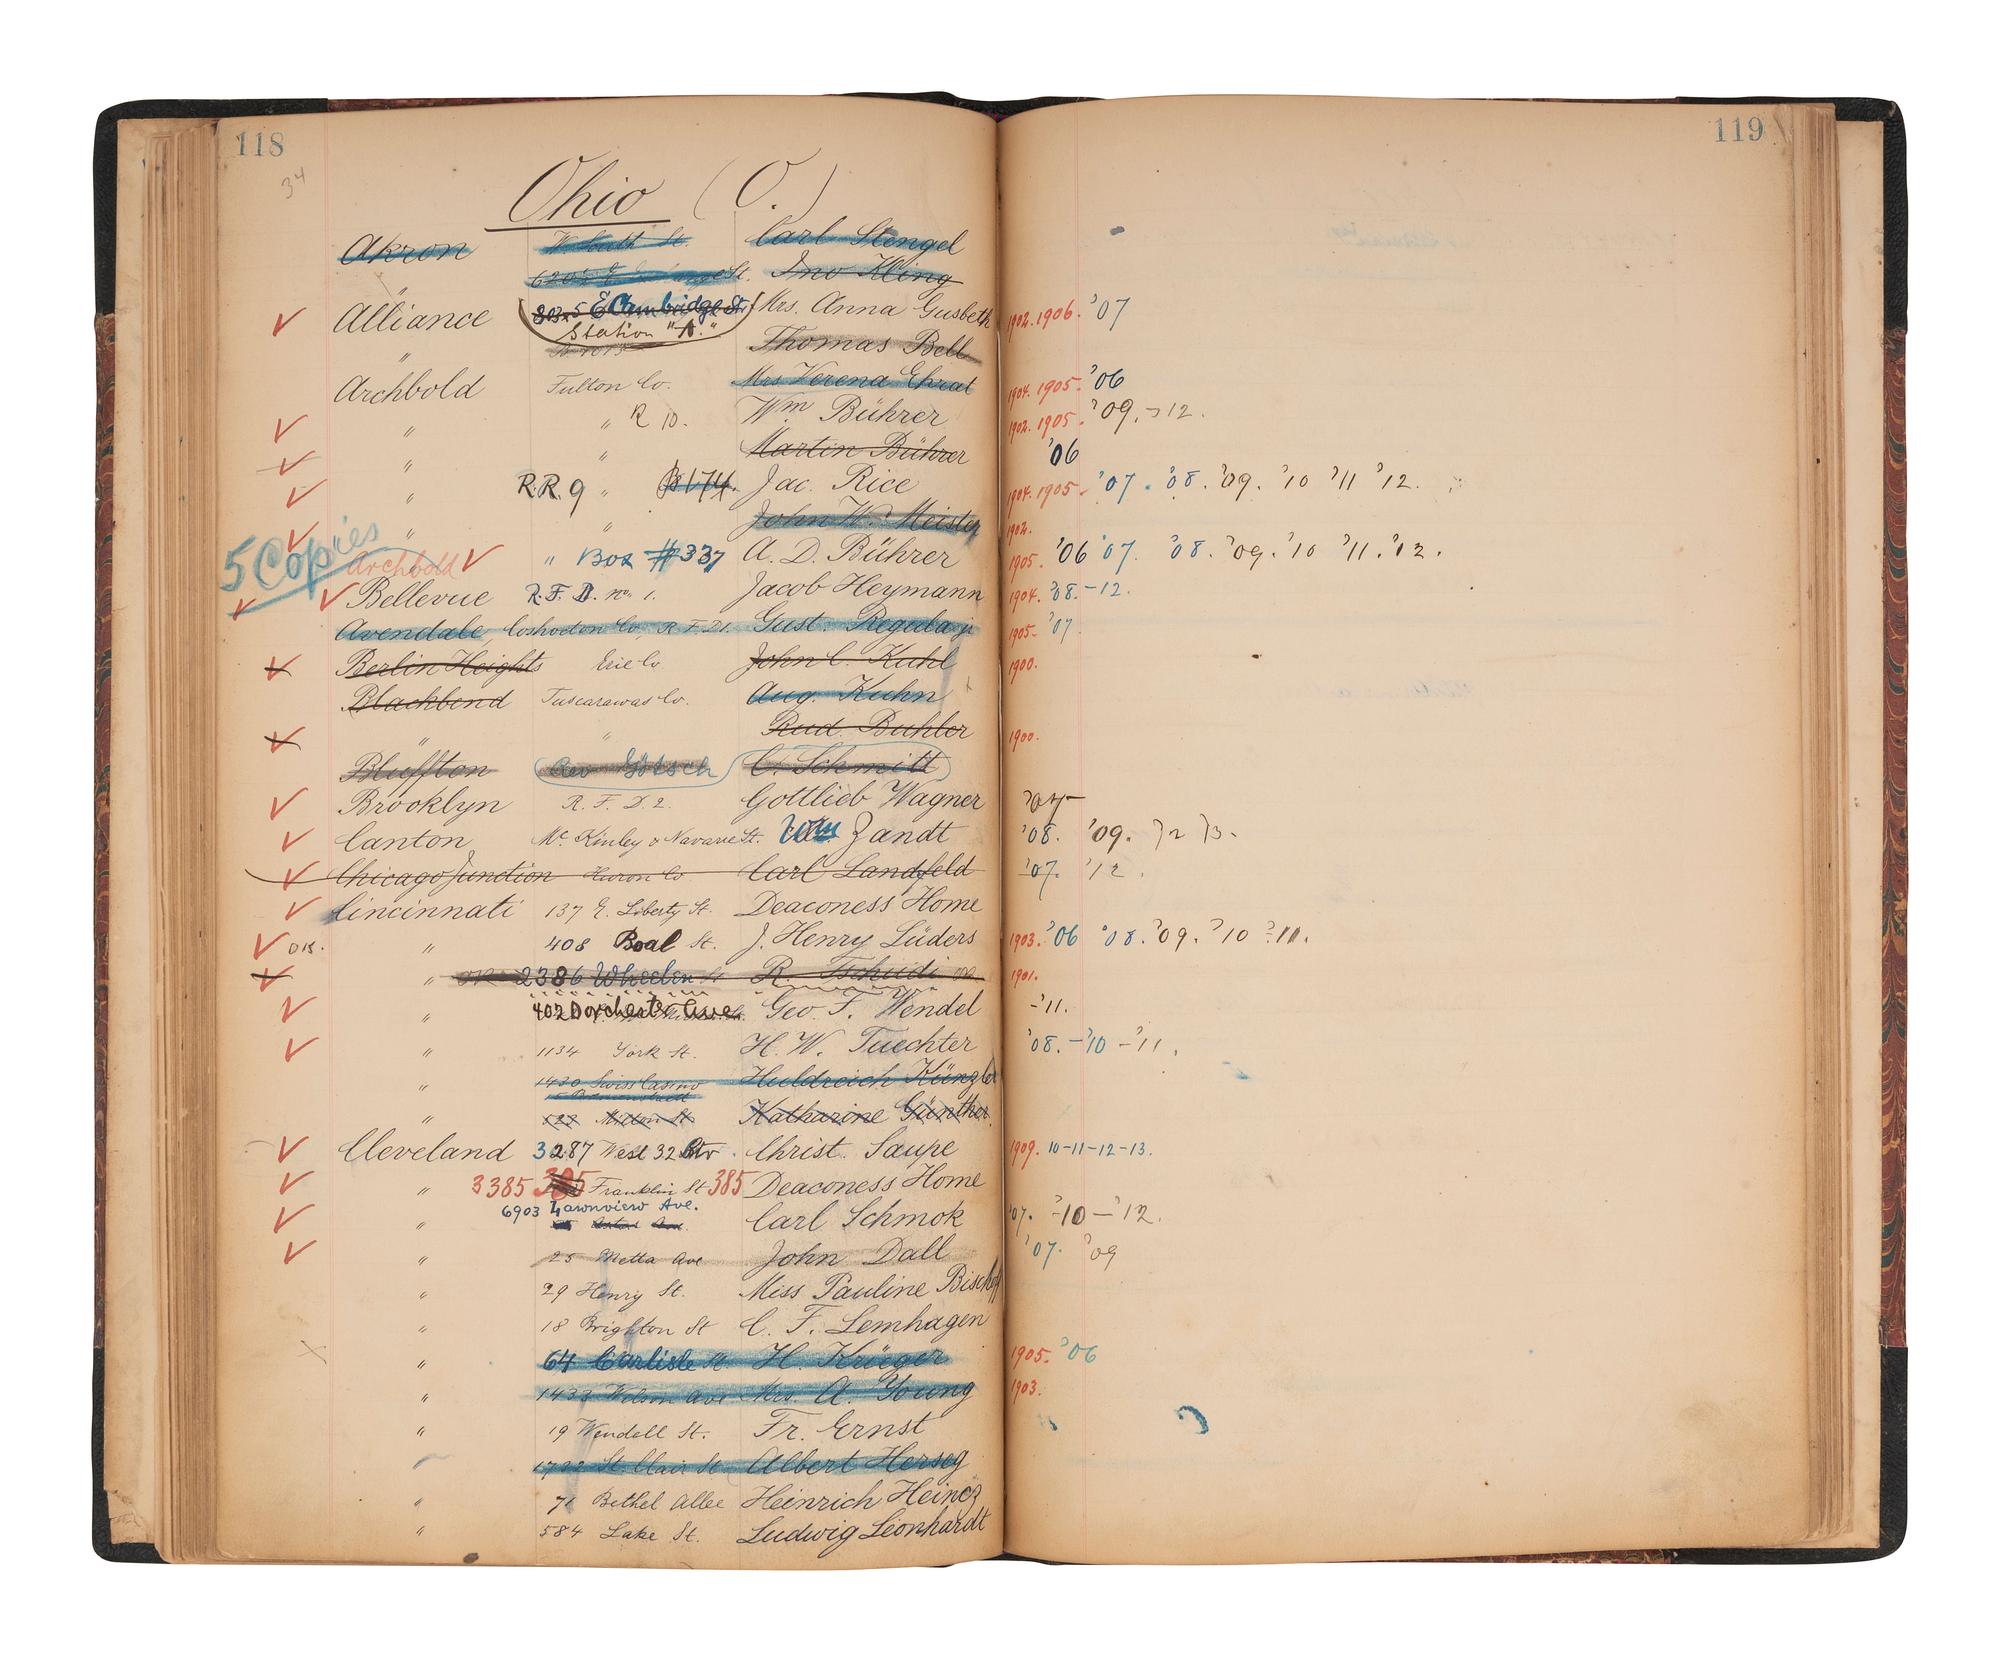 118
119
34
Ohio (O.)
Akron W. South St. Carl Stengel
" St. Jno Kling
Alliance E Cambridge St. Mrs. Anna Gusbeth 1902. 1906. '07
Station "A."
" Thomas Bell
Archbold Fulton Co. Mrs Verena Ehrat 1904. 1905. '06
" " R 10. Wm Bührer 1902. 1905. '09. -12.
" " Martin Bührer '06
" R.R. 9 " B 174. Jac. Rice 1904. 1905- '07. '08. '09. '10 '11 '12.
" John W. Meister 1902.
5 Copies
Archbold " Box #337 A. D. Bührer 1905. '06 '07. '08. '09. '10 '11. '12.
Bellevue R. F. D. no. 1. Jacob Heymann 1904. '08. -12.
Avendale, Coshocton Co, R F D 1. Gust. Regula jr 1905- '07
Berlin Heights Erie Co John C. Kuhl 1900.
Blackbend Tuscarawas Co. Aug. Kuhn
" " Rud. Buhler 1900.
Bluffton Rev Götsch C. Schmitt
Brooklyn R. F. D. 2. Gottlieb Wagner
Canton Mc Kinley & Navarre St. Zandt '08. '09. '12 '13.
Chicago Junction Huron Co Carl Landfeld '07. '12.
Cincinnati 137 E. Liberty St. Deaconess Home
OK. " 408 Boal St. J. Henry Lüders 1903. '06 '08. '09. '10 '11.
" 2386 Wheeler St R. Tschudi 1901.
" 402 Dorchester Ave. Geo. F. Wendel -'11.
" 1134 York St. H. W. Tuechter '08. -'10 -'11.
" 1430 Swiss Casino Huldreich Künzler
" 523 Milton St Katharine Günther
Cleveland 3287 West 32 Christ. Saupe 1909. 10-11-12-13.
" 3385 385 Franklin St 385 Deaconess Home
6903 Lawnview Ave.
" Carl Schmok '07. -'10 - '12.
" 25 Metta Ave John Dall '07. '09
" 29 Henry St. Miss Pauline Bischoff
" 18 Brighton St C. F. Lemhagen
" 64 Carlisle St. H. Krüger 1905. '06
" 1433 Wilson Ave Mrs. A. Young 1903.
" 19 Wendell St. Fr. Ernst
1722 St. Clair St. Albert Herseg
" 71 Bethel Allee Heinrich Heincz
" 584 Lake St. Ludwig Leonhardt